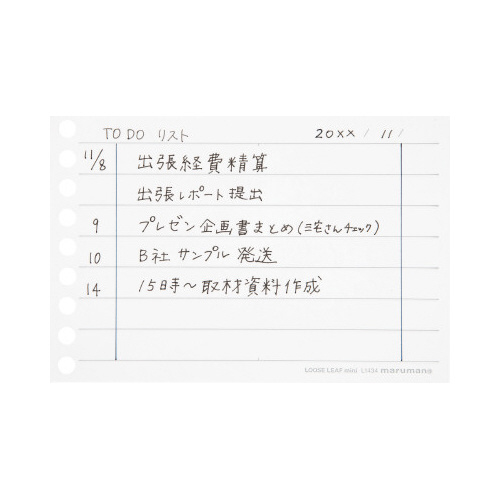 TO DO リスト 20XX / 11 /
11/8 出張経費精算
出張レポート提出
9 プレゼン企画書まとめ(三宅さんチェック)
10 B社 サンプル 発送
14 15時〜取材資料作成
LOOSE LEAF mini L1434 marumano